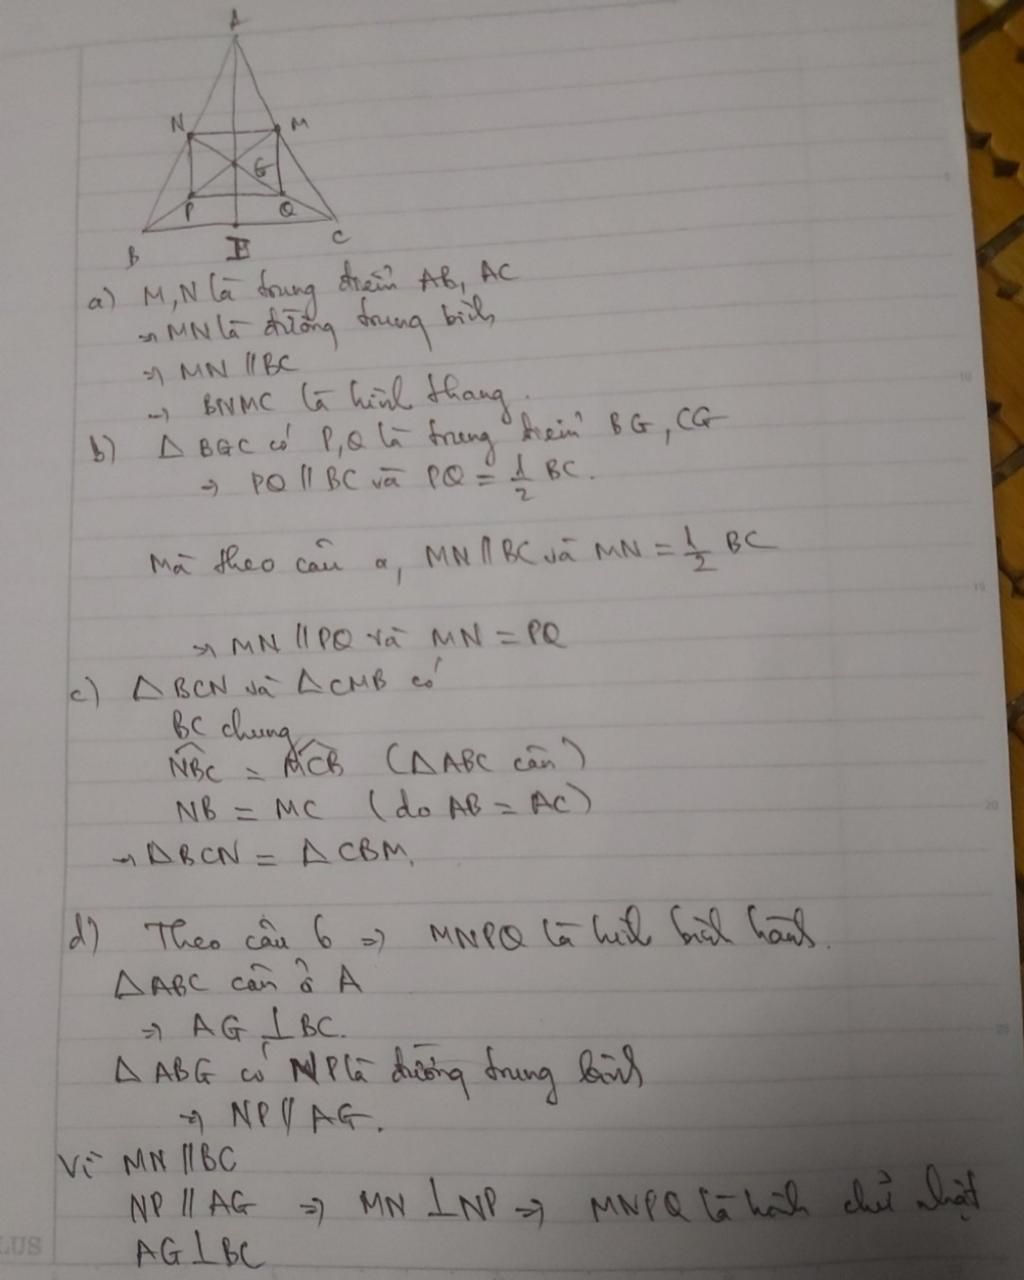 A
N M
G
P Q
B E C
a) M,N là trung điểm AB, AC
⇒ MN là đường trung bình
⇒ MN // BC
⇒ BNMC là hình thang.
b) △ BGC có P,Q là trung điểm BG, CG
⇒ PQ // BC và PQ = 1/2 BC.
Mà theo câu a, MN // BC và MN = 1/2 BC
⇒ MN // PQ và MN = PQ
c) △ BCN và △ CMB có
BC chung
NBC = MCB (△ ABC cân)
NB = MC (do AB = AC)
⇒ △BCN = △ CBM.
d) Theo câu b ⇒ MNPQ là hình bình hành.
△ABC cân ở A
⇒ AG ⊥ BC.
△ ABG có NP là đường trung bình
⇒ NP // AG.
Vì MN // BC
NP // AG ⇒ MN ⊥ NP ⇒ MNPQ là hình chữ nhật
AG ⊥ BC
LUS